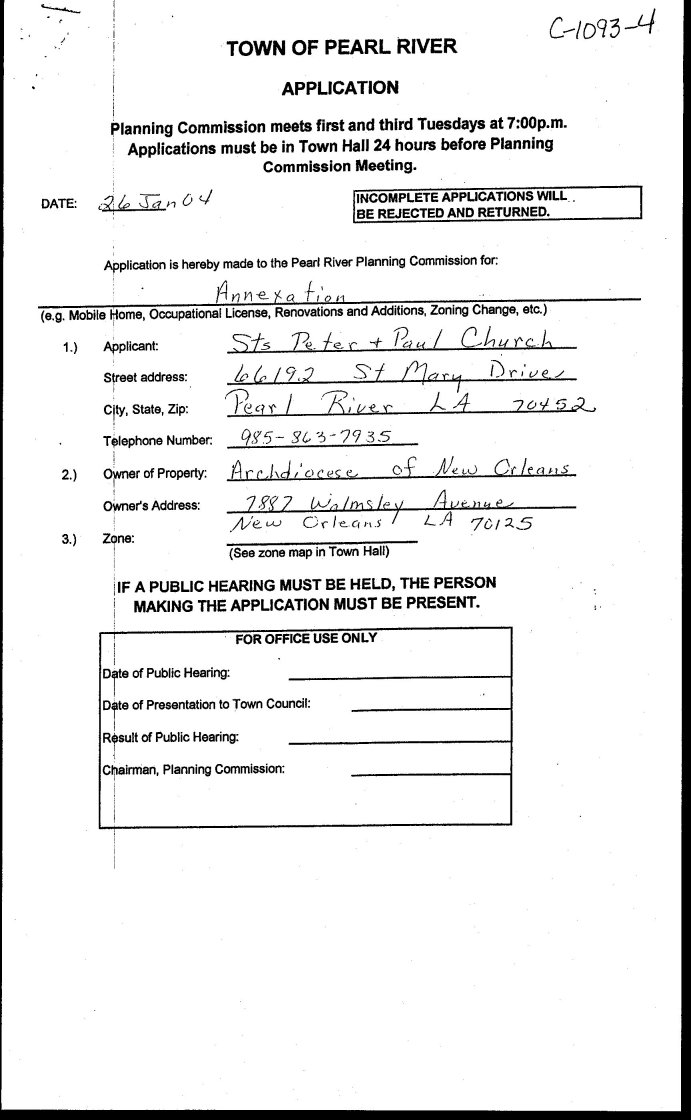 C-1093-4
TOWN OF PEARL RIVER
APPLICATION
Planning Commission meets first and third Tuesdays at 7:00p.m.
Applications must be in Town Hall 24 hours before Planning
Commission Meeting.
DATE: 26 Jan 04
INCOMPLETE APPLICATIONS WILL
BE REJECTED AND RETURNED.
Application is hereby made to the Pearl River Planning Commission for:
Annexation
(e.g. Mobile Home, Occupational License, Renovations and Additions, Zoning Change, etc.)
1.) Applicant: Sts Peter + Paul Church
Street address: 66192 St Mary Drive
City, State, Zip: Pearl River LA 70452
Telephone Number: 985-863-7935
2.) Owner of Property: Archdiocese of New Orleans
Owner's Address: 7887 Walmsley Avenue
New Orleans LA 70125
3.) Zone:
(See zone map in Town Hall)
IF A PUBLIC HEARING MUST BE HELD, THE PERSON
MAKING THE APPLICATION MUST BE PRESENT.
FOR OFFICE USE ONLY
Date of Public Hearing:
Date of Presentation to Town Council:
Result of Public Hearing:
Chairman, Planning Commission: